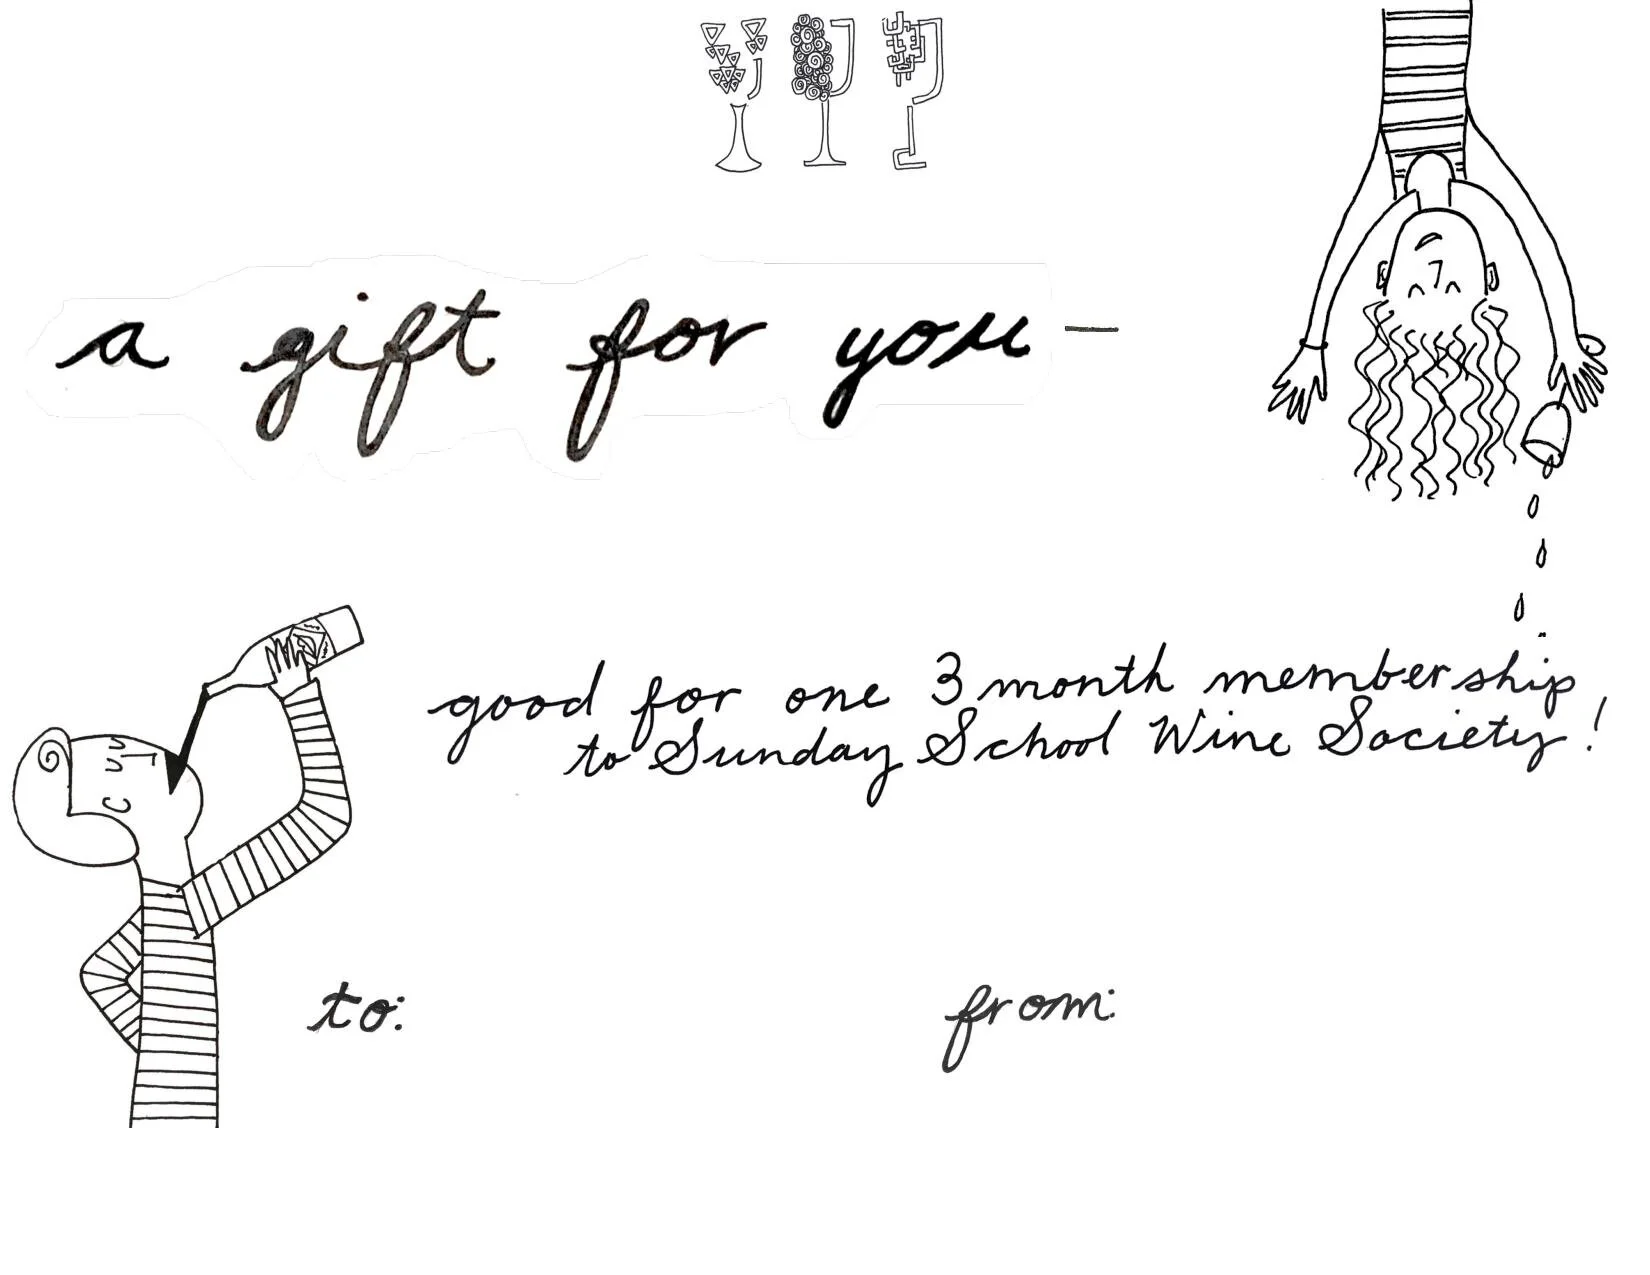 a gift for you —
good for one 3 month membership
to Sunday School Wine Society!
to:
from: